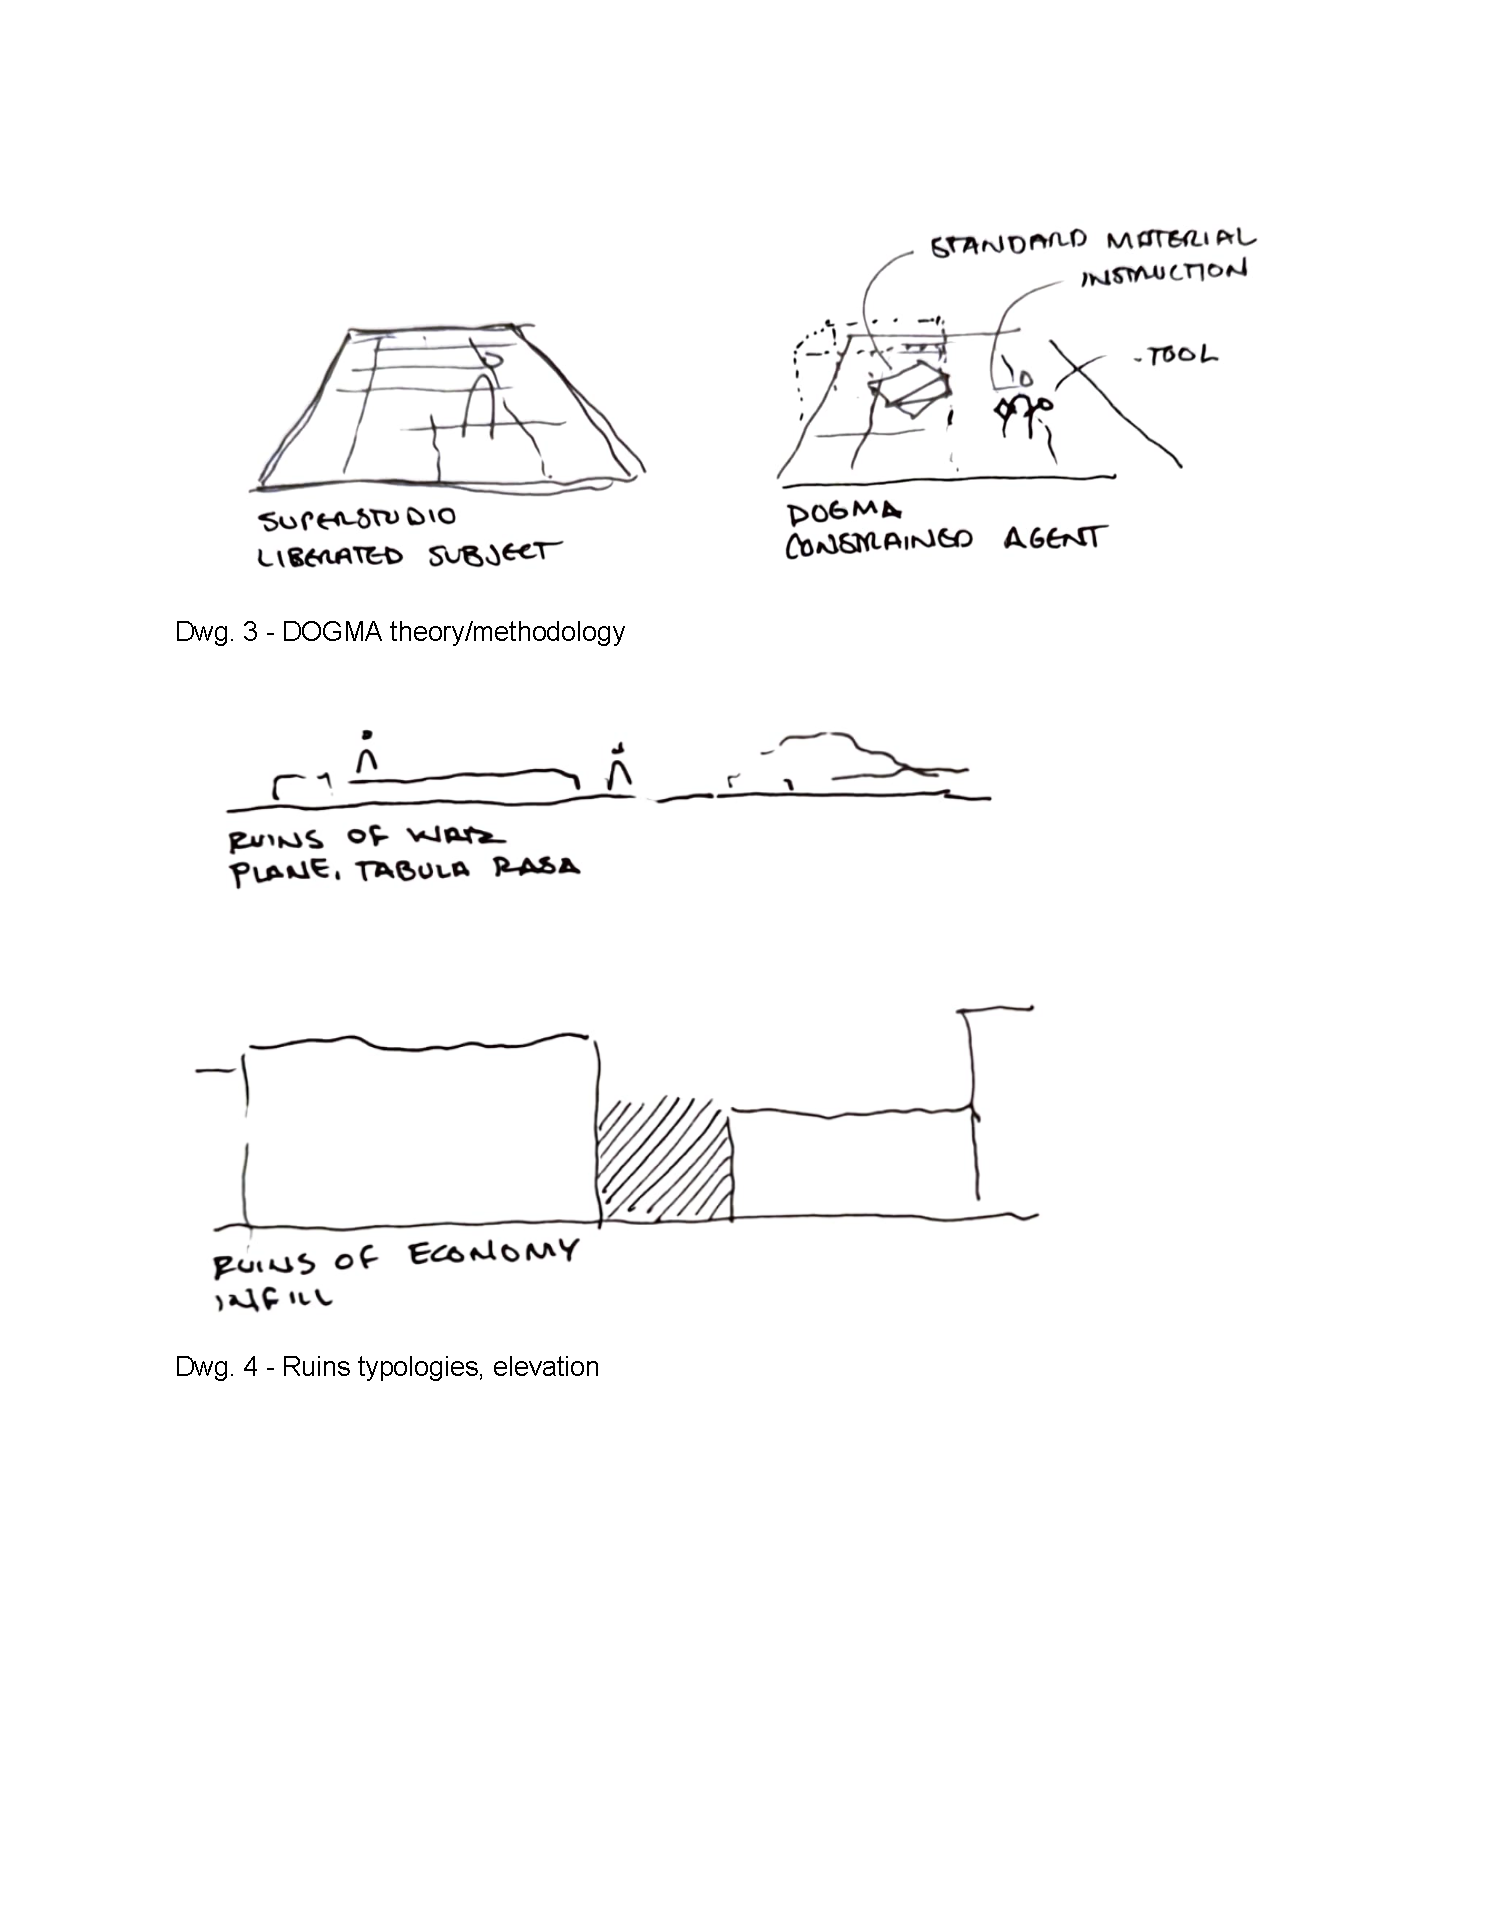 STANDARD MATERIAL
INSTRUCTION
- TOOL
SUPERSTUDIO
LIBERATED SUBJECT
DOGMA
CONSTRAINED AGENT
Dwg. 3 - DOGMA theory/methodology
RUINS OF WAR
PLANE, TABULA RASA
RUINS OF ECONOMY
INFILL
Dwg. 4 - Ruins typologies, elevation